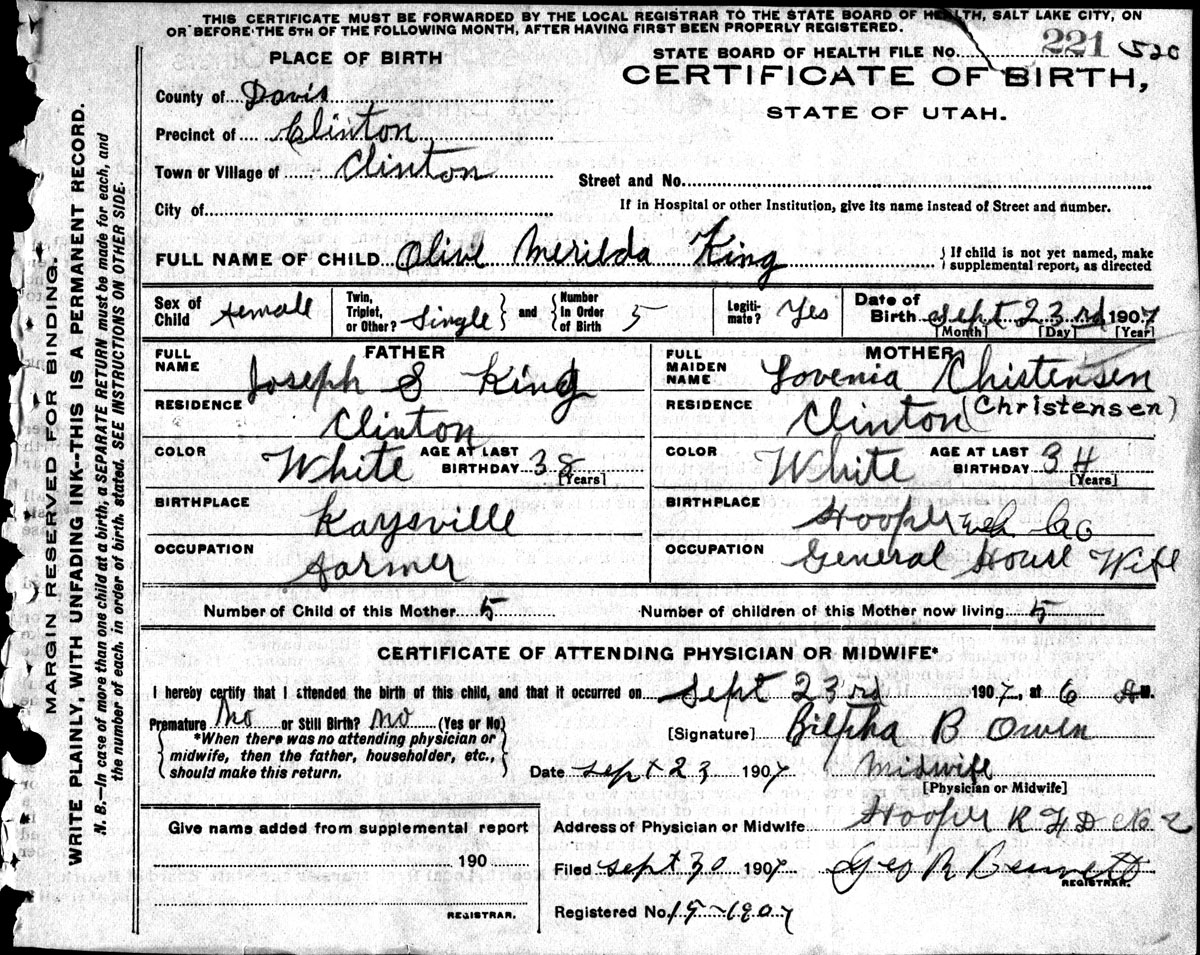 THIS CERTIFICATE MUST BE FORWARDED BY THE LOCAL REGISTRAR TO THE STATE BOARD OF HEALTH, SALT LAKE CITY, ON
OR BEFORE THE 5TH OF THE FOLLOWING MONTH, AFTER HAVING FIRST BEEN PROPERLY REGISTERED.
PLACE OF BIRTH
STATE BOARD OF HEALTH FILE No. 221 520
CERTIFICATE OF BIRTH,
STATE OF UTAH.
County of Davis
Precinct of Clinton
Town or Village of Clinton
Street and No.
City of
If in Hospital or other Institution, give its name instead of Street and number.
FULL NAME OF CHILD Olive Merilda King {If child is not yet named, make supplemental report, as directed
Sex of Child Female Twin, Triplet, or Other? Single } and { Number In Order of Birth 5 Legiti-mate? Yes Date of Birth Sept 23rd 1907
[Month] [Day] [Year]
FATHER
FULL NAME Joseph S King
RESIDENCE Clinton
COLOR White AGE AT LAST BIRTHDAY 38 [Years]
BIRTHPLACE Kaysville
OCCUPATION Farmer
MOTHER
FULL MAIDEN NAME Lovenia Christensen
RESIDENCE Clinton (Christensen)
COLOR White AGE AT LAST BIRTHDAY 34 [Years]
BIRTHPLACE Hooper Web Co
OCCUPATION General House Wife
Number of Child of this Mother 5 Number of children of this Mother now living 5
CERTIFICATE OF ATTENDING PHYSICIAN OR MIDWIFE*
I hereby certify that I attended the birth of this child, and that it occurred on Sept 23rd 1907, at 6 A M.
Premature No or Still Birth? No (Yes or No)
{*When there was no attending physician or
midwife, then the father, householder, etc.,
should make this return.}
[Signature] Bilpha B Owen
Date Sept 23 1907 Midwife
[Physician or Midwife]
Give name added from supplemental report
190
REGISTRAR.
Address of Physician or Midwife Hooper R F D No 2
Filed Sept 30 1907 Geo R Bennett
REGISTRAR.
Registered No. 15-1907
MARGIN RESERVED FOR BINDING.
WRITE PLAINLY, WITH UNFADING INK--THIS IS A PERMANENT RECORD.
N. B.—In case of more than one child at a birth, a SEPARATE RETURN must be made for each, and
the number of each, in order of birth, stated. SEE INSTRUCTIONS ON OTHER SIDE.